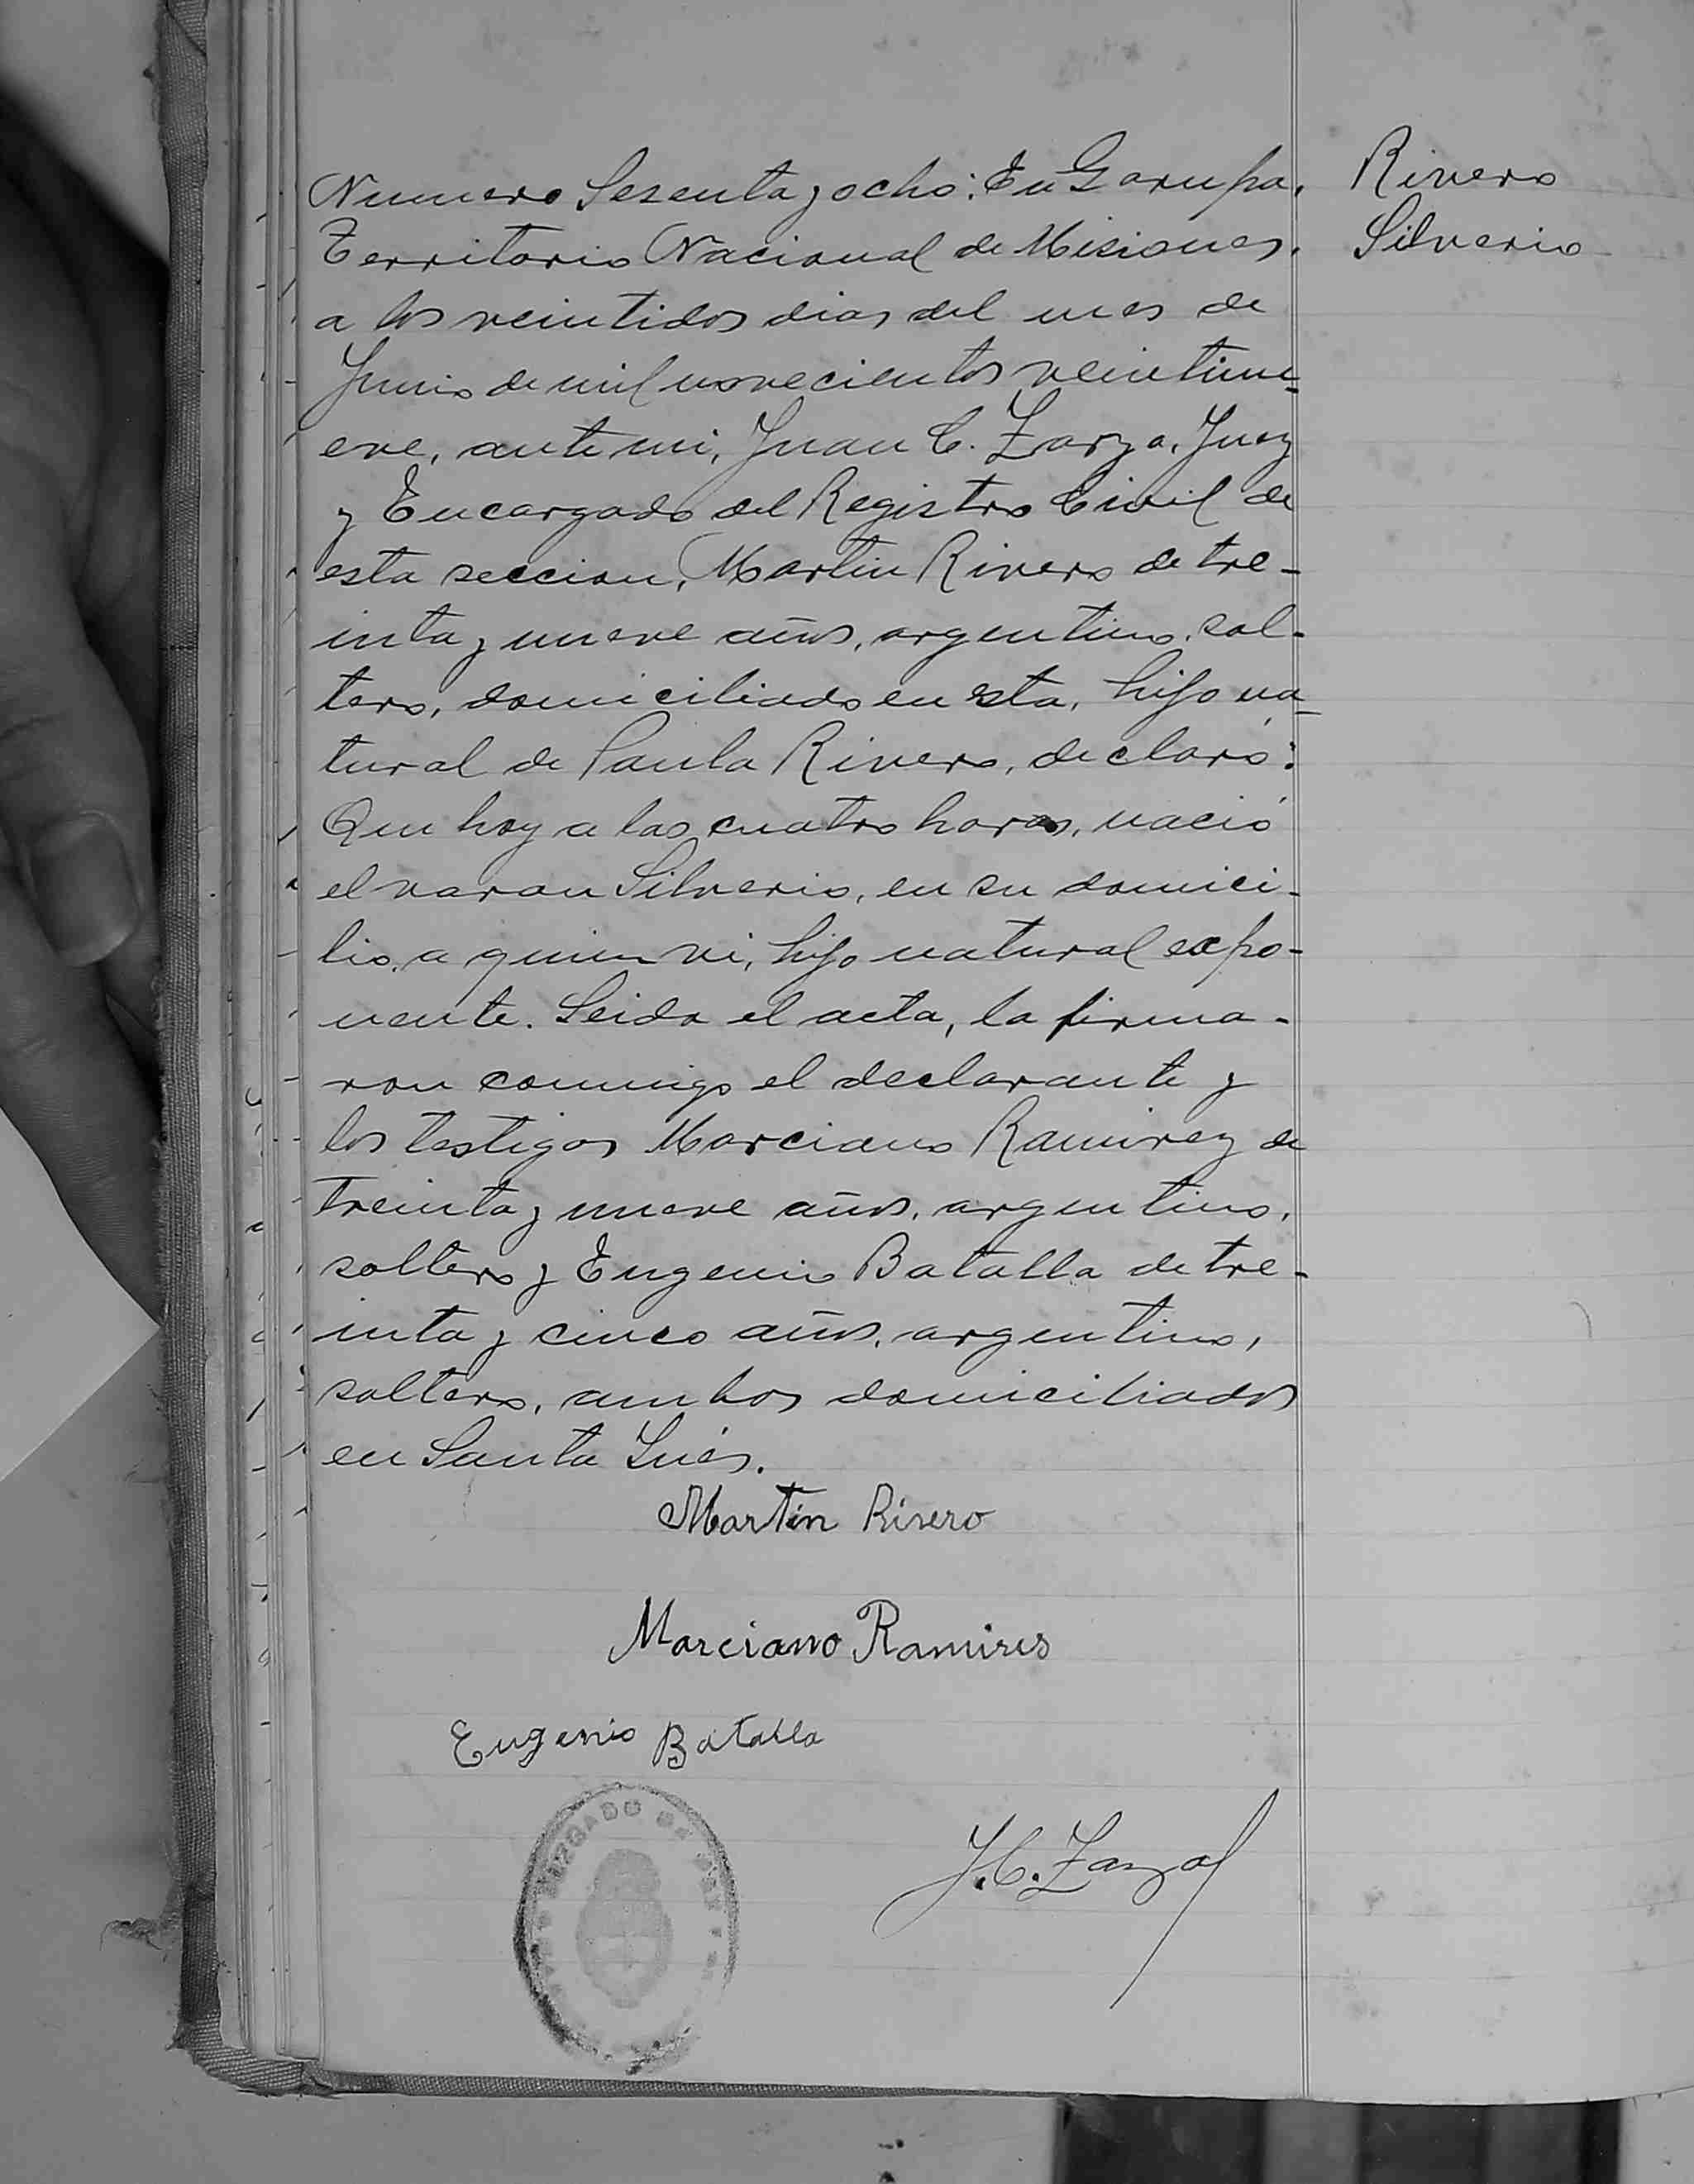 Rivero
Silverio
Numero Sesenta y ocho: En Garupa,
Territorio Nacional de Misiones,
a los veintidos dias del mes de
Junio de mil novecientos veintinu-
eve, ante mi, Juan C. Zarza, Juez
y Encargado del Registro Civil de
esta seccion, Martin Rivero de tre-
inta y nueve años, argentino, sol-
tero, domiciliado en esta, hijo na-
tural de Paula Rivero, declaró:
Que hoy a las cuatro horas, nació
el varon Silverio, en su domici-
lio, a quien vi, hijo natural expo-
nente. Leida el acta, la firma-
ron conmigo el declarante y
los testigos Marciano Ramirez de
treinta y nueve años, argentino,
soltero y Eugenio Batalla de tre-
inta y cinco años, argentino,
soltero, ambos domiciliados
en Santa Inés.
Martin Rivero
Marciano Ramires
Eugenio Batalla
J. C. Zarza
JUZGADO DE PAZ